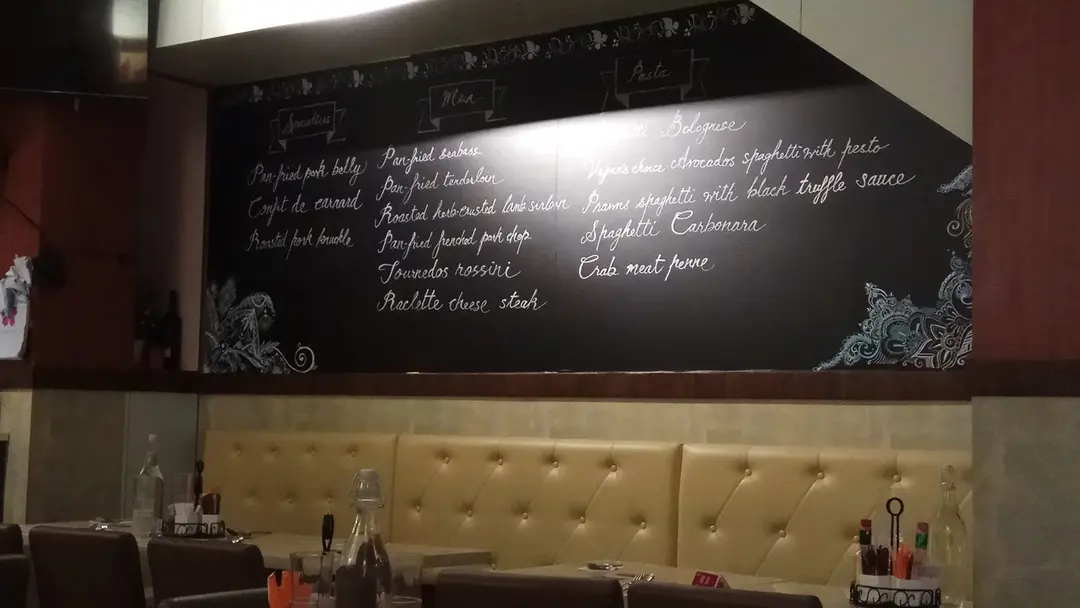 Specialties
Pan-fried pork belly
Confit de carnard
Roasted pork knuckle
Main
Pan-fried seabass
Pan-fried tenderloin
Roasted herb-crusted lamb surloin
Pan-fried frenched pork chop
Tournedos rossini
Raclette cheese steak
Pasta
Bolognese
Vegan's choice Avocados spaghetti with pesto
Prawns spaghetti with black truffle sauce
Spaghetti Carbonara
Crab meat penne